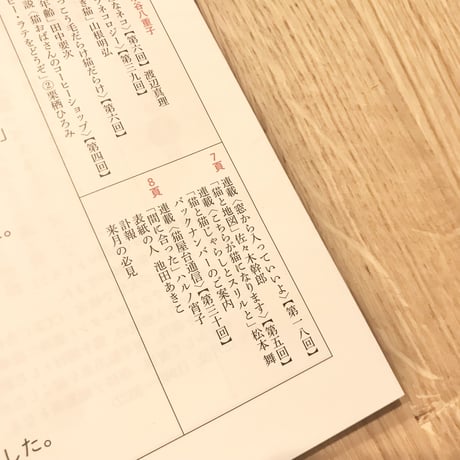 谷八重子
なネコ】【第六回】渡辺真理
ネコロジー》【第三九回】
き猫」山根明弘
っこう毛だらけ猫だらけ》【第六回】
年齢」田中要次
説《猫おばさんのコーヒーショップ》【第四回】
ラテをどうぞ」②栗栖ひろみ
7頁
連載《窓から入っていいよ》【第一八回】
「猫と地図」佐々木幹郎
連載《こちらが猫になります》【第五回】
「猫と猫じゃらしとスリルと」松本 舞
バックナンバーのご案内
8頁
連載《猫屋台通信》【第三十回】
「間に合った」ハルノ宵子
表紙の人 池田あきこ
訃報
来月の必見
」
。
した。